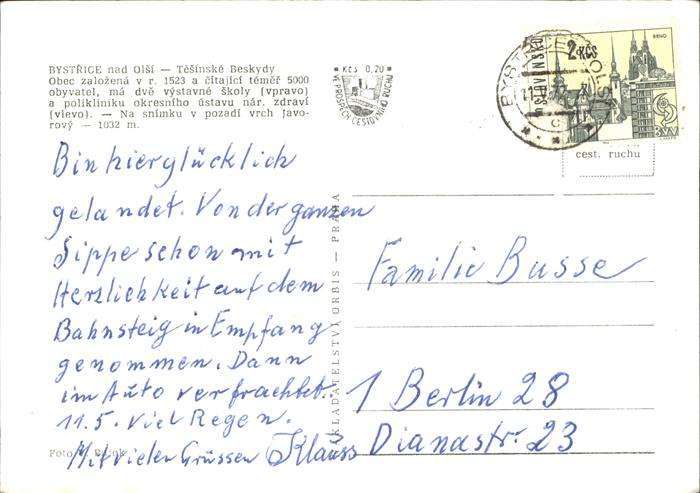 BYSTŘICE nad Olší — Těšínské Beskydy
Obec založená v r. 1523 a čítající téměř 5000
obyvatel, má dvě výstavné školy (vpravo)
a polikliniku okresního ústavu nár. zdraví
(vlevo). — Na snímku v pozadí vrch Javo-
rový — 1032 m.
Kčs 0,20
VE PROSPĚCH CESTOVNÍHO RUCHU
BRNO
2 Kčs
cest. ruchu
Bin hier glücklich
gelandet. Von der ganzen
Sippe schon mit
Herzlichkeit auf dem
Bahnsteig in Empfang
genommen. Dann
im Auto verfrachtet.
11.5. viel Regen.
Mit vielen Grüssen Klauss
Foto
NAKLADATELSTVÍ ORBIS — PRAHA
Familie Busse
1 Berlin 28
Dianastr. 23